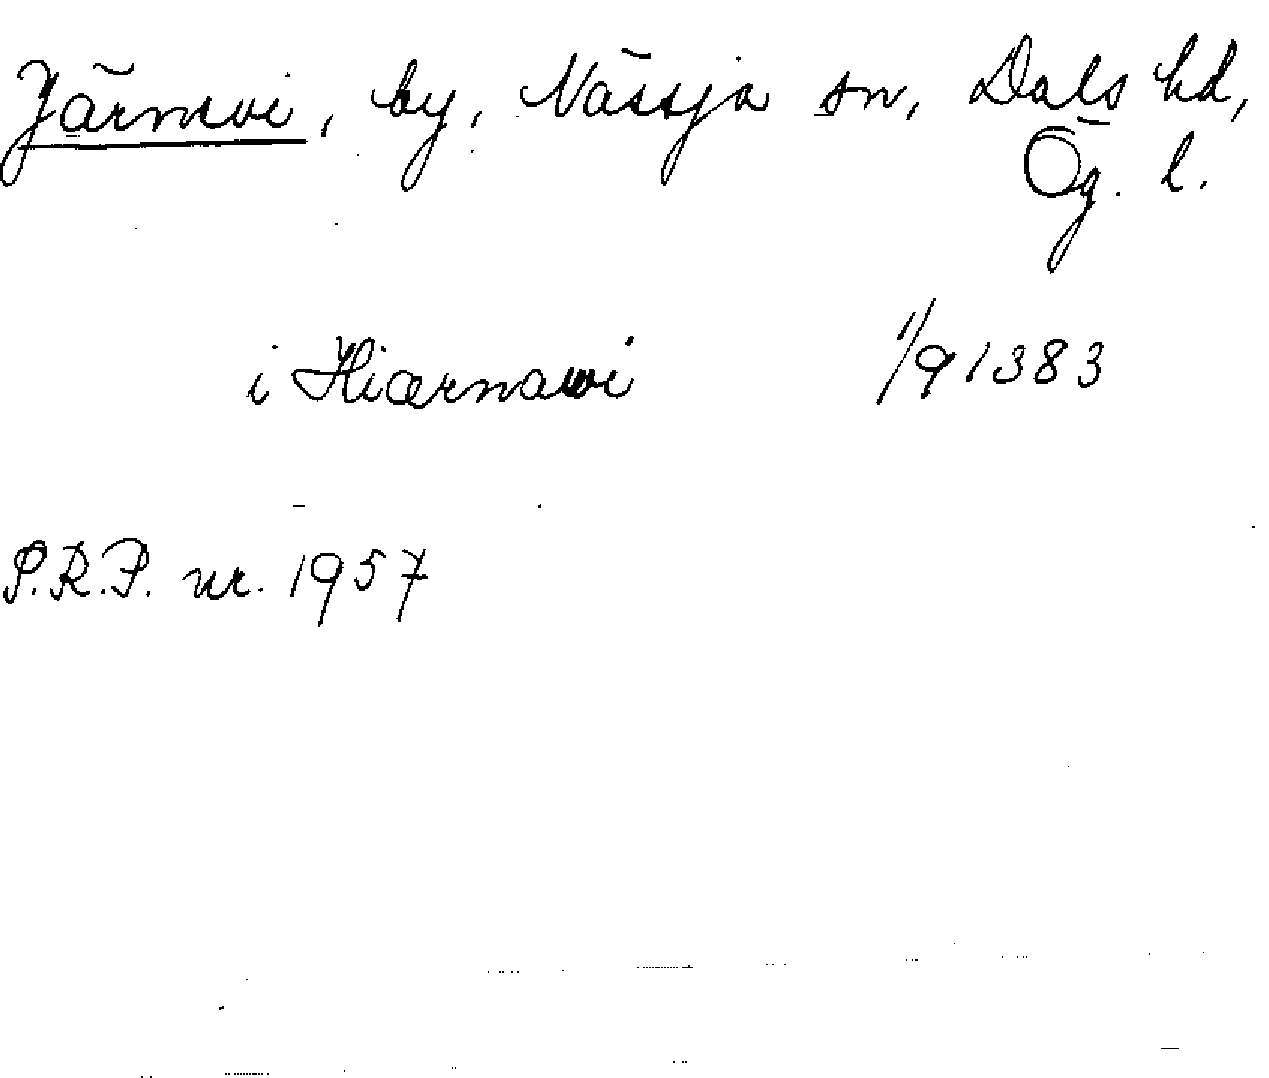 Järnevi, by, Nässja sn, Dals hd,
Ög. l.
i Hiærnawi 1/9 1383
S.R.P. nr. 1957